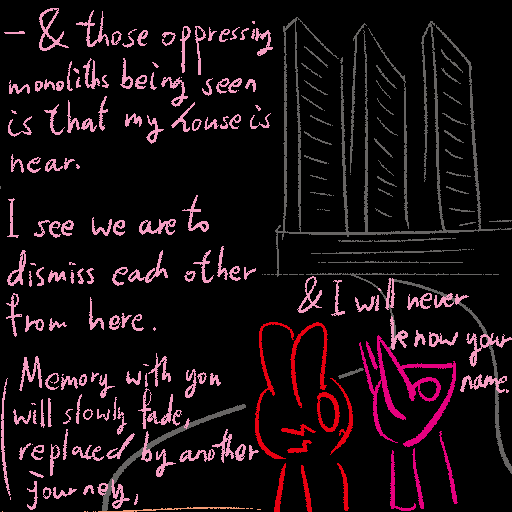 - & those oppressing
monoliths being seen
is that my house is
near.
I see we are to
dismiss each other
from here.
& I will never
know your
name.
Memory with you
will slowly fade,
replaced by another
journey,